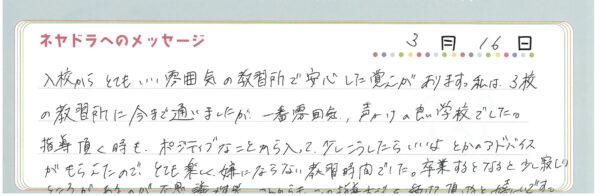 ネヤドラへのメッセージ
3月16日
入校からとてもいい雰囲気の教習所で安心した覚えがあります。私は、3校
の教習所に今まで通いましたが、一番雰囲気、声かけの良い学校でした。
指導頂く時も、ポジティブなことから入って、少しこうしたらいいよとかのアドバイス
がもらえたので、とても楽しく嫌にならない教習時間でした。卒業するとなると少し寂しい